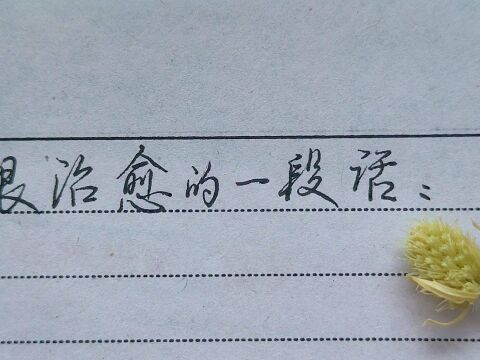 很治愈的一段话：